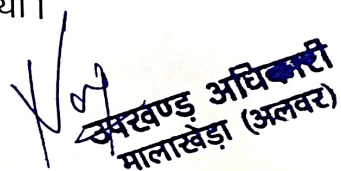 या।
उपखण्ड़ अधिकारी
मालाखेड़ा (अलवर)